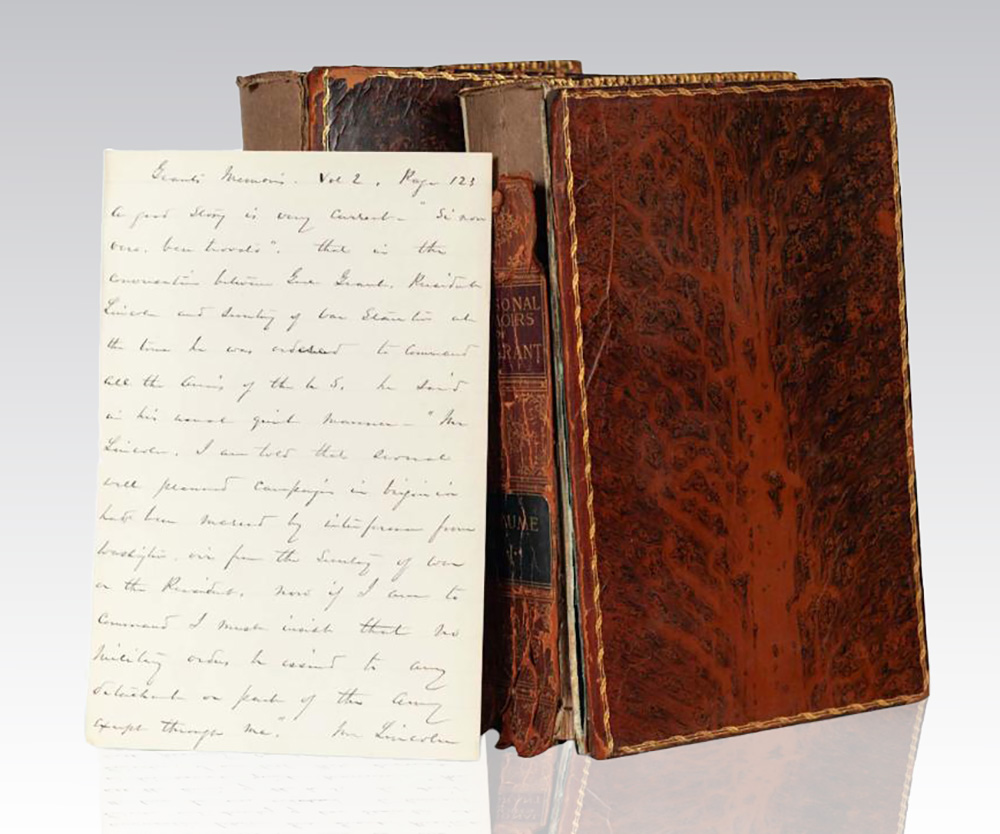 Grants Memoirs. Vol 2. Page 123
A good Story is very Current - "Si non
vero. ben trovato". that is the
conversation between Genl Grant. President
Lincoln and Secretary of War Stanton at
the time he was ordered to Command
all the Armies of the U S. he said
in his usual quiet manner - "Mr
Lincoln, I am told that several
well planned campaigns in Virginia
had been marred by interference from
Washington. from the Secretary of War
or the President. now if I am to
Command I must insist that no
Military orders be issued to any
detachment or part of the Army
except through me." Mr Lincoln
SONAL
MOIRS
GRANT
UME